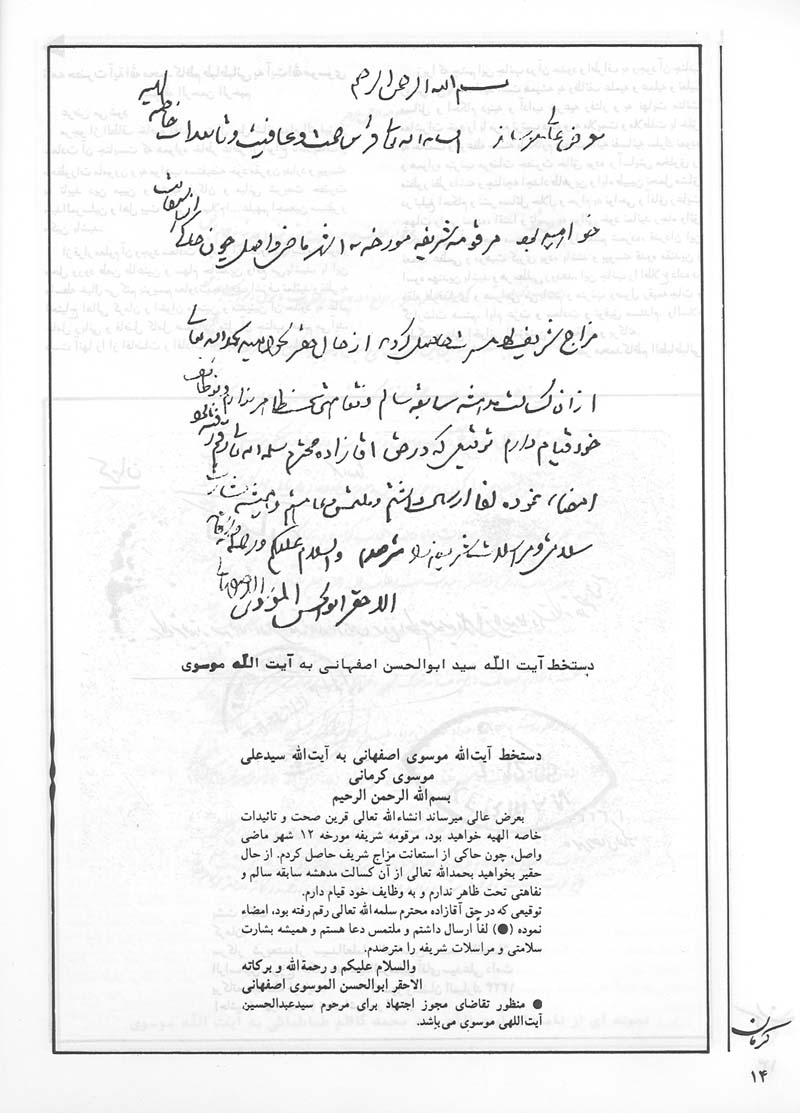 بسم الله الرحمن الرحیم
خاصه الهیه
بعرض عالی میرساند انشاءالله تعالی قرین صحت و عافیت و تائیدات
خواهید بود مرقومه شریفه مورخه ۱۲ شهر ماضی واصل چون حاکی از
مزاج شریف بود مسرت حاصل کردم از حال حقیر بخواهید بحمدالله تعالی
از آن کسالت مدهشه سابقه سالم و نقاهتی تحت ظاهر ندارم و بوظائف
خود قیام دارم توقیعی که در حق آقازاده محترم سلمه الله تعالی رقم رفته بود
امضاء نموده لفا ارسال داشتم و ملتمس دعا هستم و همیشه بشارت
سلامتی و مراسلات شریفه را مترصدم والسلام علیکم و رحمة الله و برکاته
الاحقر ابوالحسن الموسوی الاصفهانی
دستخط آیت اللّه سید ابوالحسن اصفهانی به آیت اللّه موسوی
دستخط آیت‌الله موسوی اصفهانی به آیت‌الله سیدعلی
موسوی کرمانی
بسم‌الله الرحمن الرحیم
بعرض عالی میرساند انشاءالله تعالی قرین صحت و تائیدات
خاصه الهیه خواهید بود، مرقومه شریفه مورخه ۱۲ شهر ماضی
واصل، چون حاکی از استعانت مزاج شریف حاصل کردم. از حال
حقیر بخواهید بحمدالله تعالی از آن کسالت مدهشه سابقه سالم و
نقاهتی تحت ظاهر ندارم و به وظایف خود قیام دارم.
توقیعی که در حق آقازاده محترم سلمه‌الله تعالی رقم رفته بود، امضاء
نموده (●) لفاً ارسال داشتم و ملتمس دعا هستم و همیشه بشارت
سلامتی و مراسلات شریفه را مترصدم.
والسلام علیکم و رحمةالله و برکاته
الاحقر ابوالحسن الموسوی اصفهانی
● منظور تقاضای مجوز اجتهاد برای مرحوم سیدعبدالحسین
آیت‌اللهی موسوی می‌باشد.
کرمان
۱۴